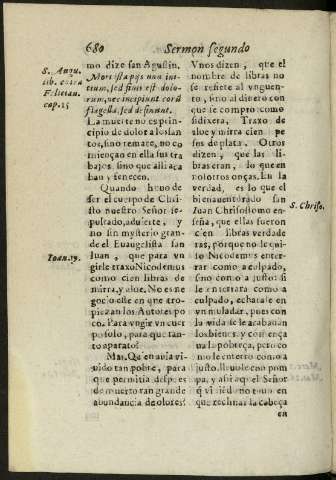 680 Sermon segundo
S. Augu.
lib. cõtra
Felician.
cap. 15
Ioan. 19.
mo dize san Agustin.
Mors ista pijs non ini-
tium, sed finis est dolo-
rum, nec incipiunt cordi
flagella, sed desinunt.
La muerte no es prin-
cipio de dolor a los san
tos, sino remate, no co
miençan en ella sus tra
bajos, sino que alli aca
ban y fenecen.
Quando huuo de
ser el cuerpo de Chri-
sto nuestro Señor se-
pultado, aduierte, y
no sin mysterio gran-
de el Euangelista san
Iuan, que para vn-
girle traxo Nicodemus
como cien libras de
mirra, y aloe. No es ne
gocio este en que tro-
pieçan los Autores po
co. Para vngir vn cuer
po solo, para que tan-
to aparato?
Mas, Que aula vi-
uido tan pobre, para
que permitia despues
de muerto tan grande
abundancia de olores?
Vnos dizen, que el
nombre de libras no
se refiere al vnguen-
to, sino al dinero con
que se comprò: como
si dixera, Traxo de
aloe y mirra cien pe
sos de plata. Otros
dizen, que las li-
bras eran, lo que en
nosotros onças. En la
verdad, es lo que el
bienauenturado san
Iuan Chrisostomo en-
seña, que ellas fueron
cien libras verdade
ras, porque no le qui-
so Nicodemus enter-
rar como a culpado,
sino como a justo: si
le enterrara como a
culpado, echarale en
vn muladar, pues con
la vida se le acabauan
los bienes y començá
ua la pobreça, pero co
mo le enterrò como a
justo, lleuole con pom
pa, y assi aquel Señor
q̃ viuiẽdo no tuuo en
que reclinar la cabeça
en
S. Chriso.